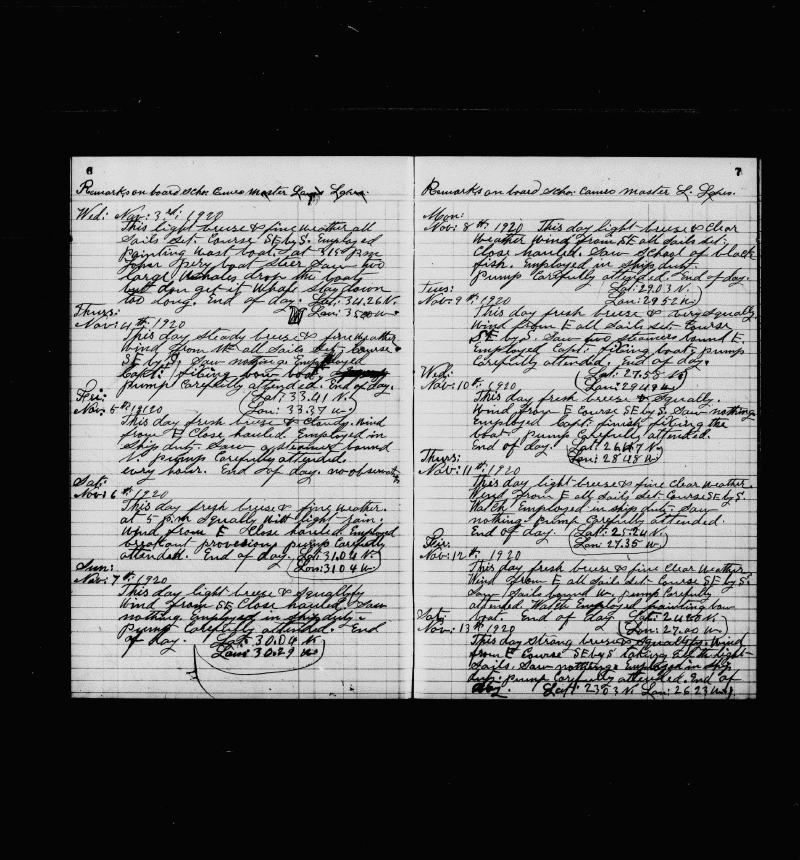 6
Remarks on board Scho. Cameo Master
Wed: Nov: 3rd: 1920
This light breese & fine weather all
Sails set. Course SE by S. Employed
Painting boat. at pm
boat Saw two
large Whale drop the boats
but don get it Whale Stay down
too long. End of day. Lat: 34.26 N.
Lon: 35 W
Thurs:
Nov: 4th: 1920
This day steady breese & fine weather
Wind from all Sails Set Course
SE by S. Saw nothing Employed
Capt: fiting boat
pump Carefully attended. End of day.
Fri: (Lat: 33.41 N.
Nov: 5th 1920 Lon: 33.37 W.
This day fresh breese & Cloudy. Wind
from E Close hauled. Employed in
Ship duty. Saw a Steamer bound
N. Pump Carefully attended
every hour. End of day. no observation
Sat:
Nov: 6th: 1920
This day fresh breese & fine weather.
at 5 p.m Squally With light rain.
Wind from E Close hauled Employed
breakout provisions pump Carefully
attended. End of day. Lat: 31.04 N.
Lon: 31.04 W.
Sun:
Nov: 7th 1920
This day light breese & Squally
Wind from SE Close hauled. Saw
nothing. Employed in Ship duty.
Pump Carefully attended. End
of day. Lat: 30.00 N.
Lon: 30.29 W
7
Remarks on board Scho: Cameo Master L.
Mon:
Nov: 8th: 1920 This day light breese & Clear
Weather Wind from SE all Sails set.
Close hauled. Saw School of black
fish. Employed in ship duty.
Pump Carefully attended. End of day.
Tues: Lat: 29.03 N.
Nov: 9th 1920 Lon: 29.52 W.
This day fresh breese & very Squally.
Wind from E all Sails set. Course
SE by S. Saw two steamers bound E.
Employed Capt: fiting boat, pump
Carefully attended. End of day.
Wed: (Lat: 27.53 N
Nov: 10th 1920 Lon: 29.49 W.
This day fresh breese & Squally.
Wind from E Course SE by S. Saw nothing
Employed Capt: finish fiting the
boat Pump Carefully attended.
End of day. Lat: 26.47 N
Thurs: Lon: 28.48 W.
Nov: 11th: 1920
This day light breese & fine Clear Weather
Wind from E all sails set. Course SE by S.
Watch Employed in ship duty. Saw
nothing. Pump Carefully attended.
End of day. (Lat: 25.24 N.
Fri: Lon: 27.35 W.
Nov: 12th: 1920
This day fresh breese & fine Clear Weather
Wind from E all sails set. Course SE by S.
Saw 1 Sails bound W. pump Carefully
attended Watch Employed painting bow
Sat: boat. End of day Lat: 24.00 N.
Nov: 13th 1920 (Lon: 27.00 W.
This day Strong breese & Squally. Wind
from E Course SE by S taking all the light
Sails. Saw nothing. Employed in Ship
duty. pump Carefully attended. End of
day. Lat: 23.03 N. Lon: 26.23 W.